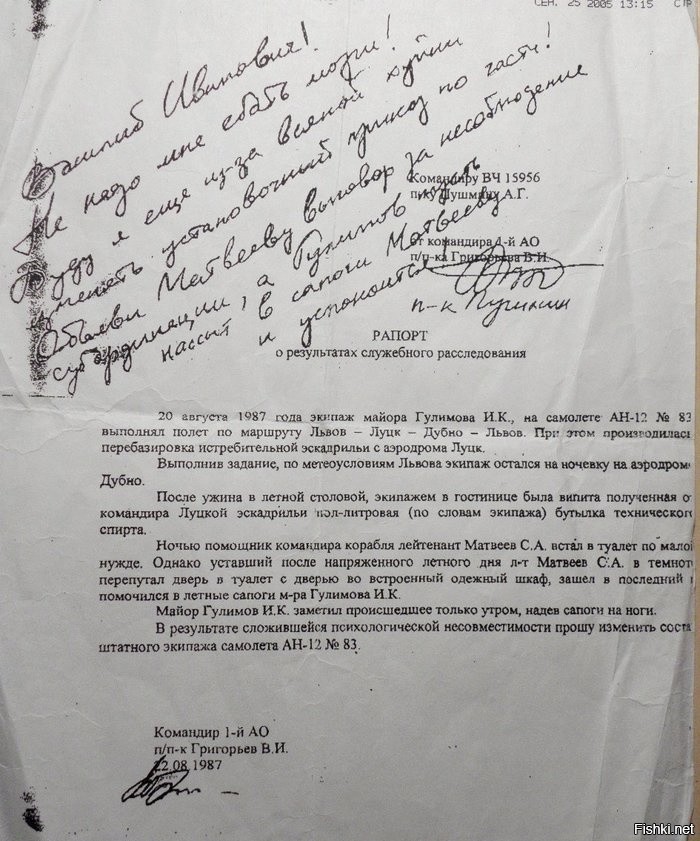 СЕН. 25 2005 13:15 СТР
Василий Иванович!
Не надо мне ебать мозги!
Буду я еще из-за всякой хуйни
изменять установочный приказ по части!
Объяви Матвееву выговор за несоблюдение
субординации, а Гулимов пусть
нассыт в сапоги Матвееву
и успокоится
п-к
Командиру ВЧ 15956
п/п-ку Пушмину А.Г.
от командира 1-й АО
п/п-ка Григорьева В.И.
РАПОРТ
о результатах служебного расследования
20 августа 1987 года экипаж майора Гулимова И.К., на самолете АН-12 № 83
выполнял полет по маршруту Львов – Луцк – Дубно – Львов. При этом производилась
перебазировка истребительной эскадрильи с аэродрома Луцк.
Выполнив задание, по метеоусловиям Львова экипаж остался на ночевку на аэродроме
Дубно.
После ужина в летной столовой, экипажем в гостинице была випита полученная от
командира Луцкой эскадрильи пол-литровая (по словам экипажа) бутылка технического
спирта.
Ночью помощник командира корабля лейтенант Матвеев С.А. встал в туалет по малой
нужде. Однако уставший после напряженного летного дня л-т Матвеев С.А. в темноте
перепутал дверь в туалет с дверью во встроенный одежный шкаф, зашел в последний и
помочился в летные сапоги м-ра Гулимова И.К.
Майор Гулимов И.К. заметил происшедшее только утром, надев сапоги на ноги.
В результате сложившейся психологической несовместимости прошу изменить соста
штатного экипажа самолета АН-12 № 83.
Командир 1-й АО
п/п-к Григорьев В.И.
22.08.1987
Fishki.net